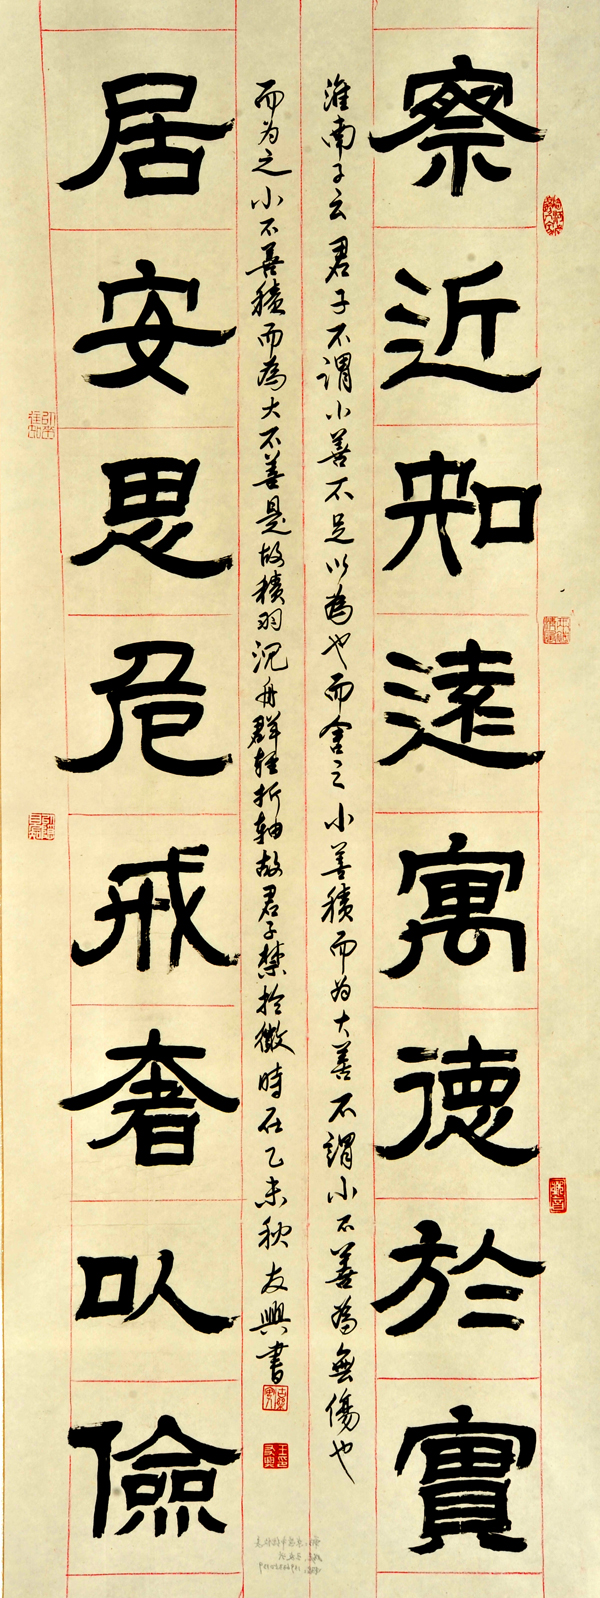 察近知遠寓德於實
淮南子云君子不謂小善不足以為也而舍之小善積而为大善不謂小不善為無傷也
而为之小不善積而為大不善是故積羽沉舟群轻折轴故君子禁於微時在乙未秋友興書
居安思危戒奢以儉